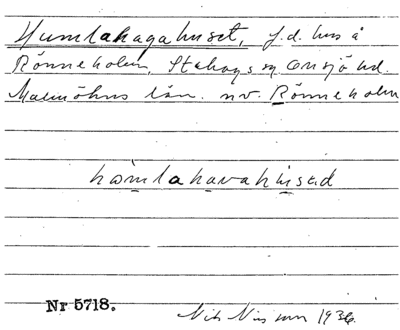 Humlahagahuset, f.d. hus å
Rönneholm, Stehags sn. Onsjö hd.
Malmöhus län. nv. Rönneholm
hòmlahavahùsəd
Nr 5718.
Nils Nilsson 1936.